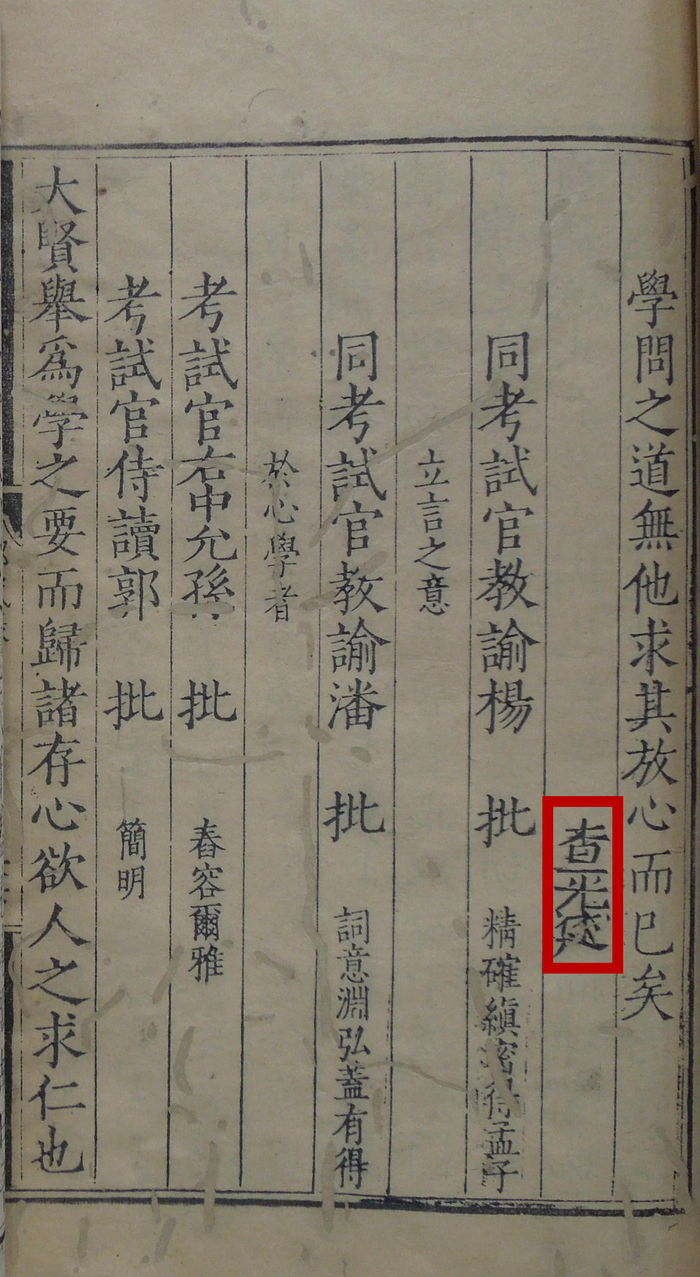 學問之道無他求其放心而已矣
查光
同考試官教諭楊 批 精確縝密得孟子
立言之意
同考試官教諭潘 批 詞意淵弘蓋有得
於心學者
考試官右中允孫 批 舂容爾雅
考試官侍讀郭 批 簡明
大賢舉爲學之要而歸諸存心欲人之求仁也